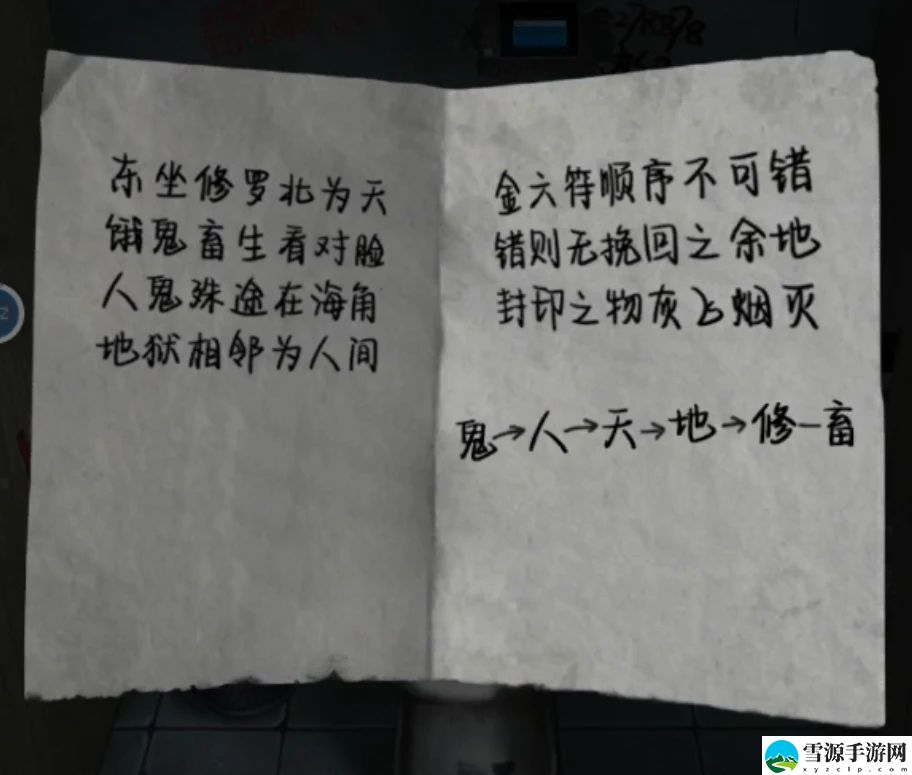 东坐修罗北为天
饿鬼畜生看对脸
人鬼殊途在海角
地狱相邻为人间
金六符顺序不可错
错则无挽回之余地
封印之物灰飞烟灭
鬼→人→天→地→修—畜
雪源手游网
xyzclp.com